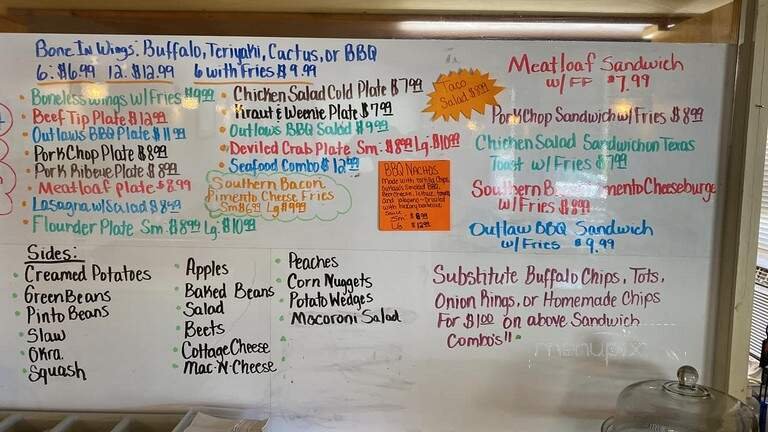 Bone In Wings: Buffalo, Teriyaki, Cactus, or BBQ
6: $6.99 12: $12.99 6 with Fries $9.99
Boneless Wings w/ Fries $9.99
Beef Tip Plate $12.99
Outlaws BBQ Plate $11.99
Pork Chop Plate $8.99
Pork Ribeye Plate $8.99
Meatloaf plate $8.99
Lasagna w/ Salad $8.99
Flounder Plate Sm: $8.99 Lg: $10.99
Chicken Salad Cold Plate $7.99
Kraut & Weenie Plate $7.99
Outlaws BBQ Salad $9.99
Deviled Crab Plate Sm: $8.99 Lg: $10.99
Seafood Combo $12.99
Southern Bacon
Pimento Cheese Fries
Sm $6.99 Lg $9.99
Taco
Salad $8.99
BBQ Nachos
Made with tortilla chips,
Outlaws Smoked BBQ,
Beer cheese, lettuce, tomato,
and jalapeno - Drizzled
with hickory barbecue
sauce
Sm: $8.99
LG $12.99
Meatloaf Sandwich
w/ FF $7.99
Pork Chop Sandwich w/ Fries $8.99
Chicken Salad Sandwich on Texas
Toast w/ Fries $7.99
Southern Pimento Cheeseburge
w/ Fries $8.99
Outlaw BBQ Sandwich
w/ Fries $9.99
Sides:
Creamed Potatoes
Green Beans
Pinto Beans
Slaw
Okra
Squash
Apples
Baked Beans
Salad
Beets
Cottage Cheese
Mac-N-Cheese
Peaches
Corn Nuggets
Potato Wedges
Macaroni Salad
Substitute Buffalo Chips, Tots,
Onion Rings, or Homemade Chips
For $1.00 on above Sandwich
Combo's!!
menupix